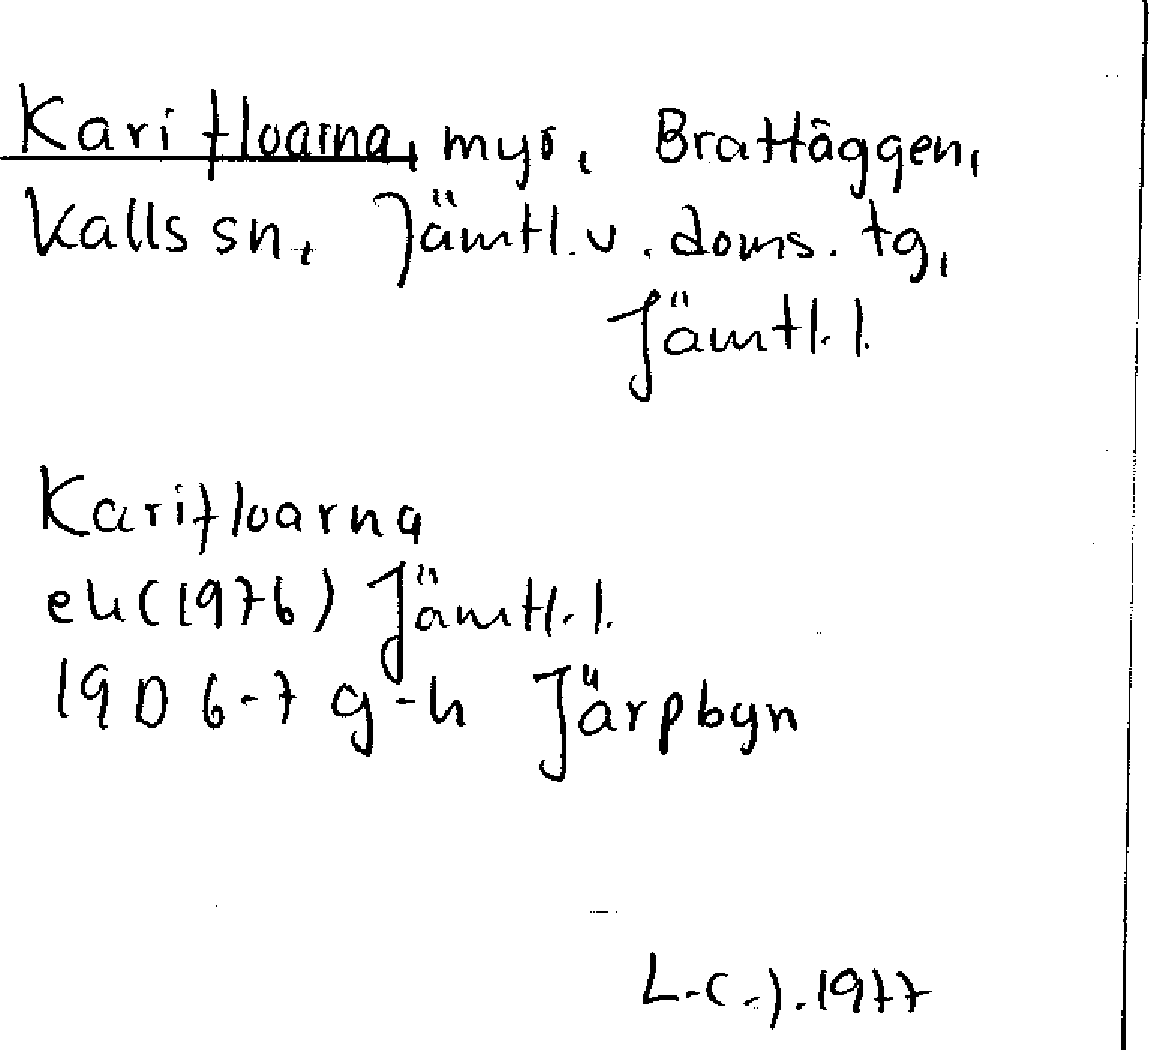 Karifloarna, myr, Brattäggen,
Kalls sn, Jämtl. v. doms. tg,
Jämtl. l.
Karifloarna
ek (1976) Jämtl. l.
19D 6-7 g-h Järpbyn
L.C.J. 1977